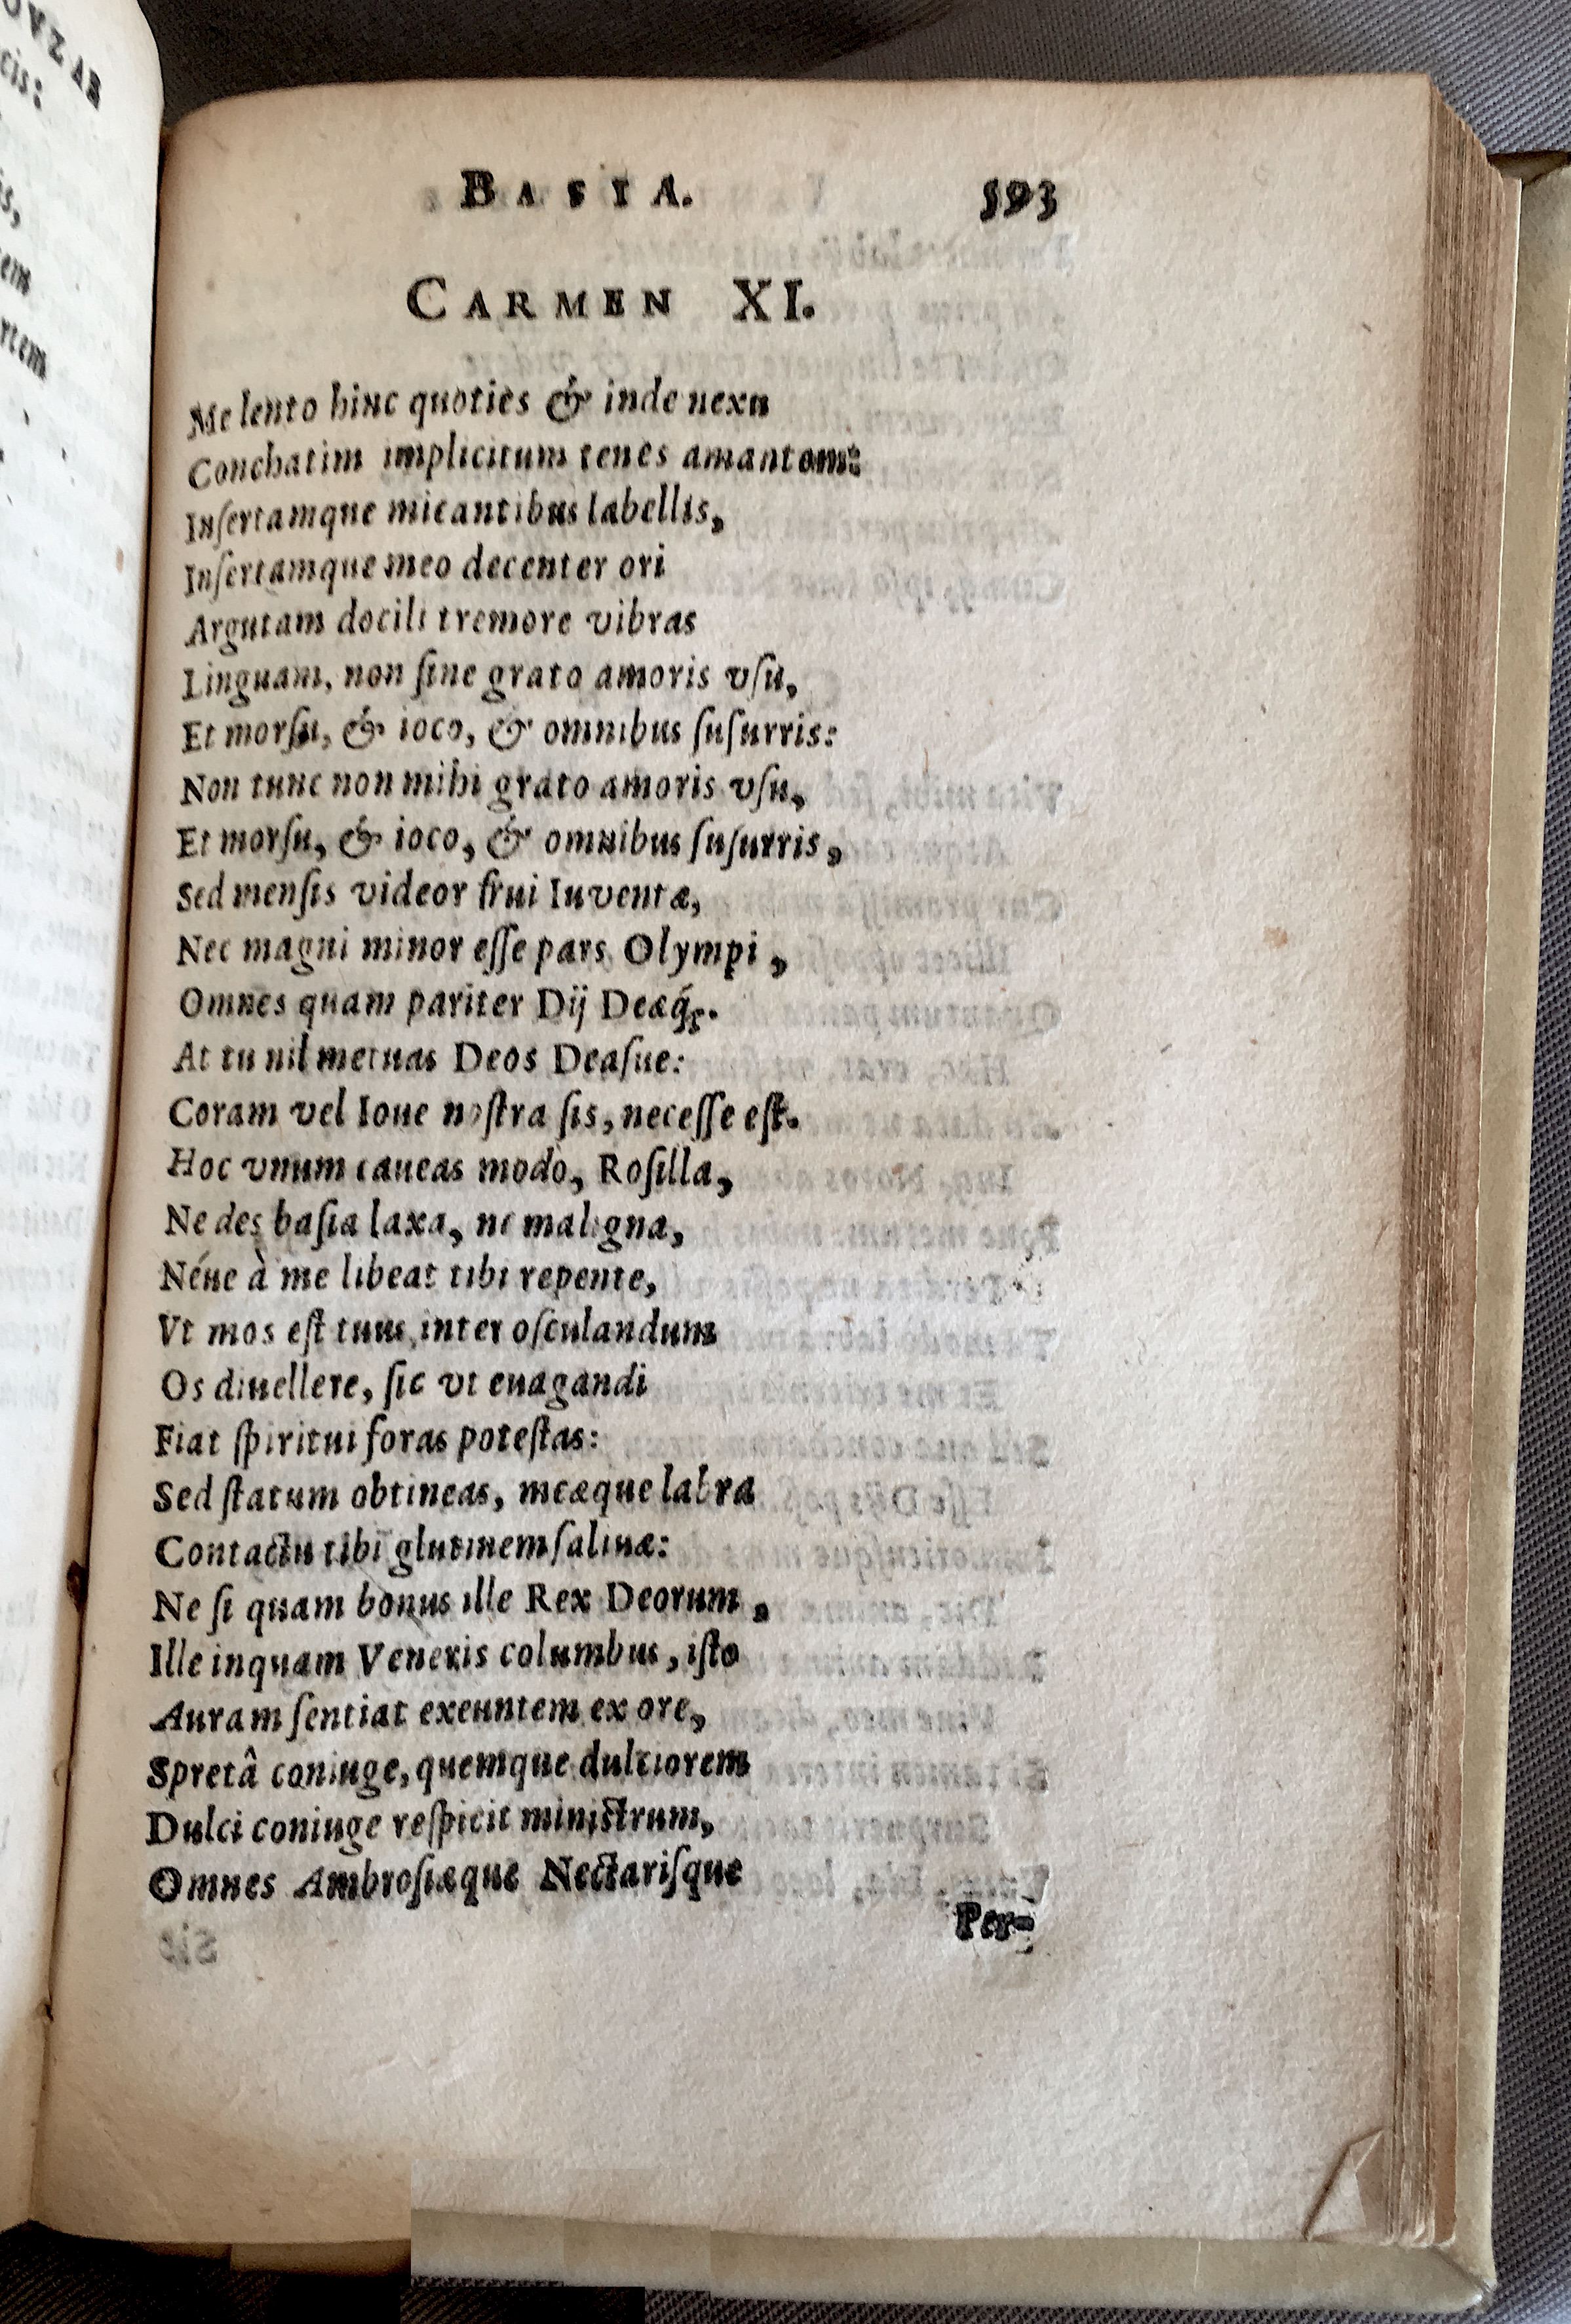 BASIA. 593
CARMEN XI.
Me lento hinc quoties & inde nexu
Conchatim implicitum tenes amantem:
Insertamque micantibus labellis,
Insertamque meo decenter ori
Argutam docili tremore vibras
Linguam, non sine grato amoris vsu,
Et morsu, & ioco, & omnibus susurris:
Non tunc non mihi grato amoris vsu,
Et morsu, & ioco, & omnibus susurris,
Sed mensis videor frui Iuventæ,
Nec magni minor esse pars Olympi,
Omnes quam pariter Dij Deæq́;.
At tu nil metuas Deos Deasue:
Coram vel Ioue nostra sis, necesse est.
Hoc vnum caueas modò, Rosilla,
Ne des basia laxa, ne maligna,
Néue à me libeat tibi repente,
Vt mos est tuus, inter osculandum
Os diuellere, sic vt euagandi
Fiat spiritui foras potestas:
Sed statum obtineas, meæque labra
Contactu tibi glutinem saliuæ:
Ne si quam bonus ille Rex Deorum,
Ille inquam Veneris columbus, isto
Auram sentiat exeuntem ex ore,
Spretâ coniuge, quemque dulciorem
Dulci coniuge respicit ministrum,
Omnes Ambrosiæque Nectarisque
Per-